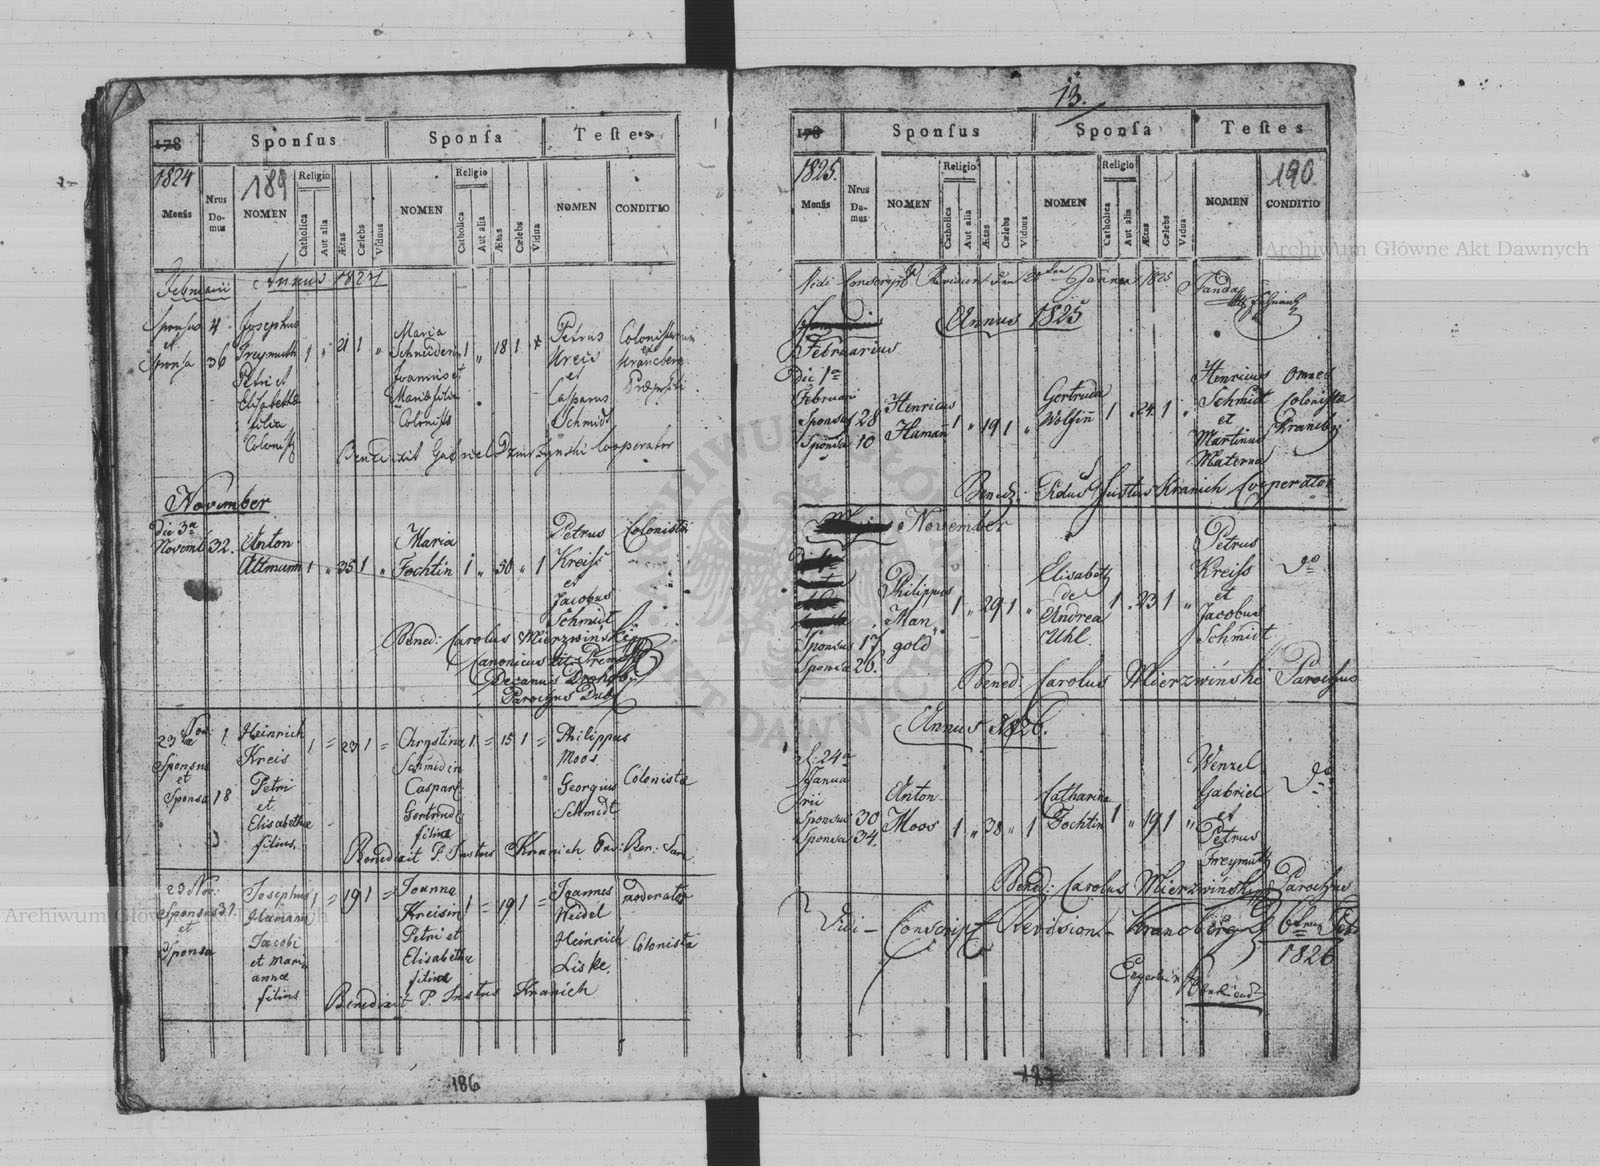 178 Sponſus Sponſa Teſtes
1824 189
Menſis Nrus Domus NOMEN Religio Catholica Aut alia Ætas Cælebs Viduus NOMEN Religio Catholica Aut alia Ætas Cælebs Vidua NOMEN CONDITIO
Februarii Annus 1824
Sponsus 4 Josephus
et
Sponsa 36 Freymuth 1 " 21 1 "
Petri et
Elisabethæ
filii
Colonist
Maria
Schneiderin 1 " 18 1
Joannis et
Mariæ filia
Colonists
Petrus
Kreis
et
Casparus
Schmidt
Colonistarum
et
Krancberg
Benedixit Gabriel Cooperator
November
Die 3ª
Novemb 32. Anton
Altmann 1 " 35 1 "
Maria
Fochtin 1 " 50 " 1
Petrus
Kreiss
et
Jacobus
Schmidt
Colonista
Bened: Carolus Mierzwiński
Canonicus
Decanus
Parochus
23 Nov: 1. Heinrich
Sponsus
et
Sponsa 18
Kreis 1 = 23 1 =
Petri
et
Elisabethæ
filius,
Chrystina 1 = 15 1 =
Schmidin
Caspari
Gertrudæ
filiæ
Philippus
Moos
Georgius
Schmidt
Colonista
Benedixit P. Justus Kranich
23 Nov:
Sponsus 37.
et
Sponsa
Josephus 1 = 19 1 =
Hamann
Jacobi
et Mari
annæ
filius
Joanna
Kreisin 1 = 19 1 =
Petri et
Elisabethæ
filiæ
Joannes
Weidel
Heinrich
Liske.
moderator
Colonista
Benedixit P. Justus Kranich
186
13.
178 Sponſus Sponſa Teſtes
1825. 190
Menſis Nrus Domus NOMEN Religio Catholica Aut alia Ætas Cælebs Viduus NOMEN Religio Catholica Aut alia Ætas Cælebs Vidua NOMEN CONDITIO
Vidi 1825
Annus 1825
Februarius
Die 1ª
Februari
Sponsus 28 Henricus
Sponsa 10 Haman 1 " 19 1 "
Gertruda
Wolfin 1 " 24 1 "
Henricus
Schmidt
et
Martinus
Materna
omnes
Colonista
Krancbz
Bened: Fidus Justus Kranich Cooperator
November
Sponsus 17
Sponsa 26.
Philippus
Man 1 " 29 1 "
gold
Elisabeth
de
Andrea 1 " 23 1 "
Uhl.
Petrus
Kreiss
et
Jacobus
Schmidt
do
Bened: Carolus Mierzwiński Parochus
Annus 1826.
d. 24ª
Janua
rii
Sponsus 30
Sponsa 34.
Anton
Moos 1 " 38 " 1
Catharina
Fochtin 1 " 19 1 "
Wenzel
Gabriel
et
Petrus
Freymuth
do
Bened: Carolus Mierzwiński Parochus
Vidi Conscript Revision Krancberg
1826
187
Archiwum Główne Akt Dawnych
Archiwum Główne Akt Dawnych
ARCHIWUM GŁÓWNE AKT DAWNYCH